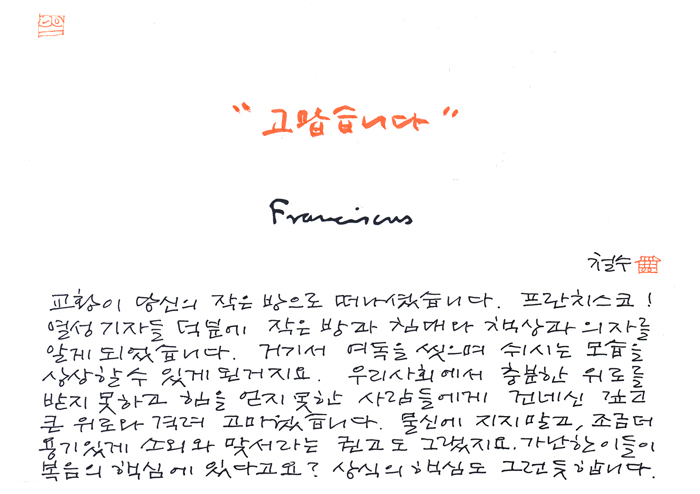 "고맙습니다"
Franciscus
철수
교황이 당신의 작은 방으로 떠나셨습니다. 프란치스코!
열성기자들 덕분에 작은 방과 침대와 책상과 의자를
알게 되었습니다. 거기서 여독을 씻으며 쉬시는 모습을
상상할 수 있게 된거지요. 우리사회에서 충분한 위로를
받지 못하고 힘을 얻지 못한 사람들에게 건네신 깊고
큰 위로와 격려 고마웠습니다. 물신에 지지말고, 조금더
용기있게 소외와 맞서라는 권고도 그렇지요. 가난한 이들이
복음의 핵심에 있다고요? 상식의 핵심도 그런듯 합니다.